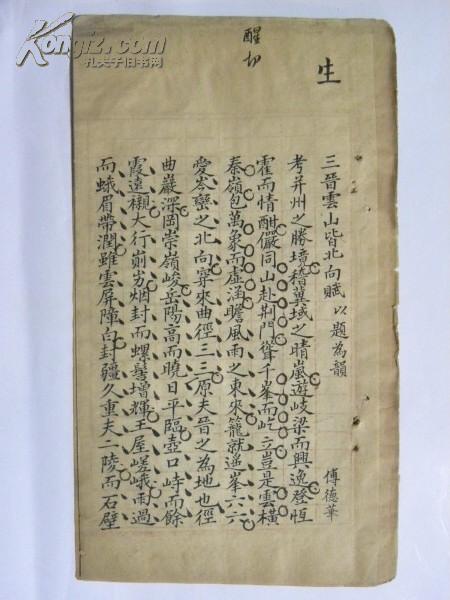 生
醒切
三晉雲山皆北向賦 以題為韻 傅德華
考并州之勝境稽冀域之晴嵐遊岐梁而興逸登恆
霍而情酣儼同山赴荆門聳千峯而屹立豈是雲橫
秦嶺包萬象而虛涵瞻風雨之東來籠就遙峯六六
愛岑巒之北向穿來曲徑三三原夫晉之為地也徑
曲巖深岡崇嶺峻岳陽高而曉日平臨壺口峙而餘
霞遠襯大行崱屴烟封而螺髻增輝王屋嵯峨雨過
而蛾眉帶潤雖雲屏障白封疆久重夫二陵而石壁
Kongfz.com
孔夫子旧书网